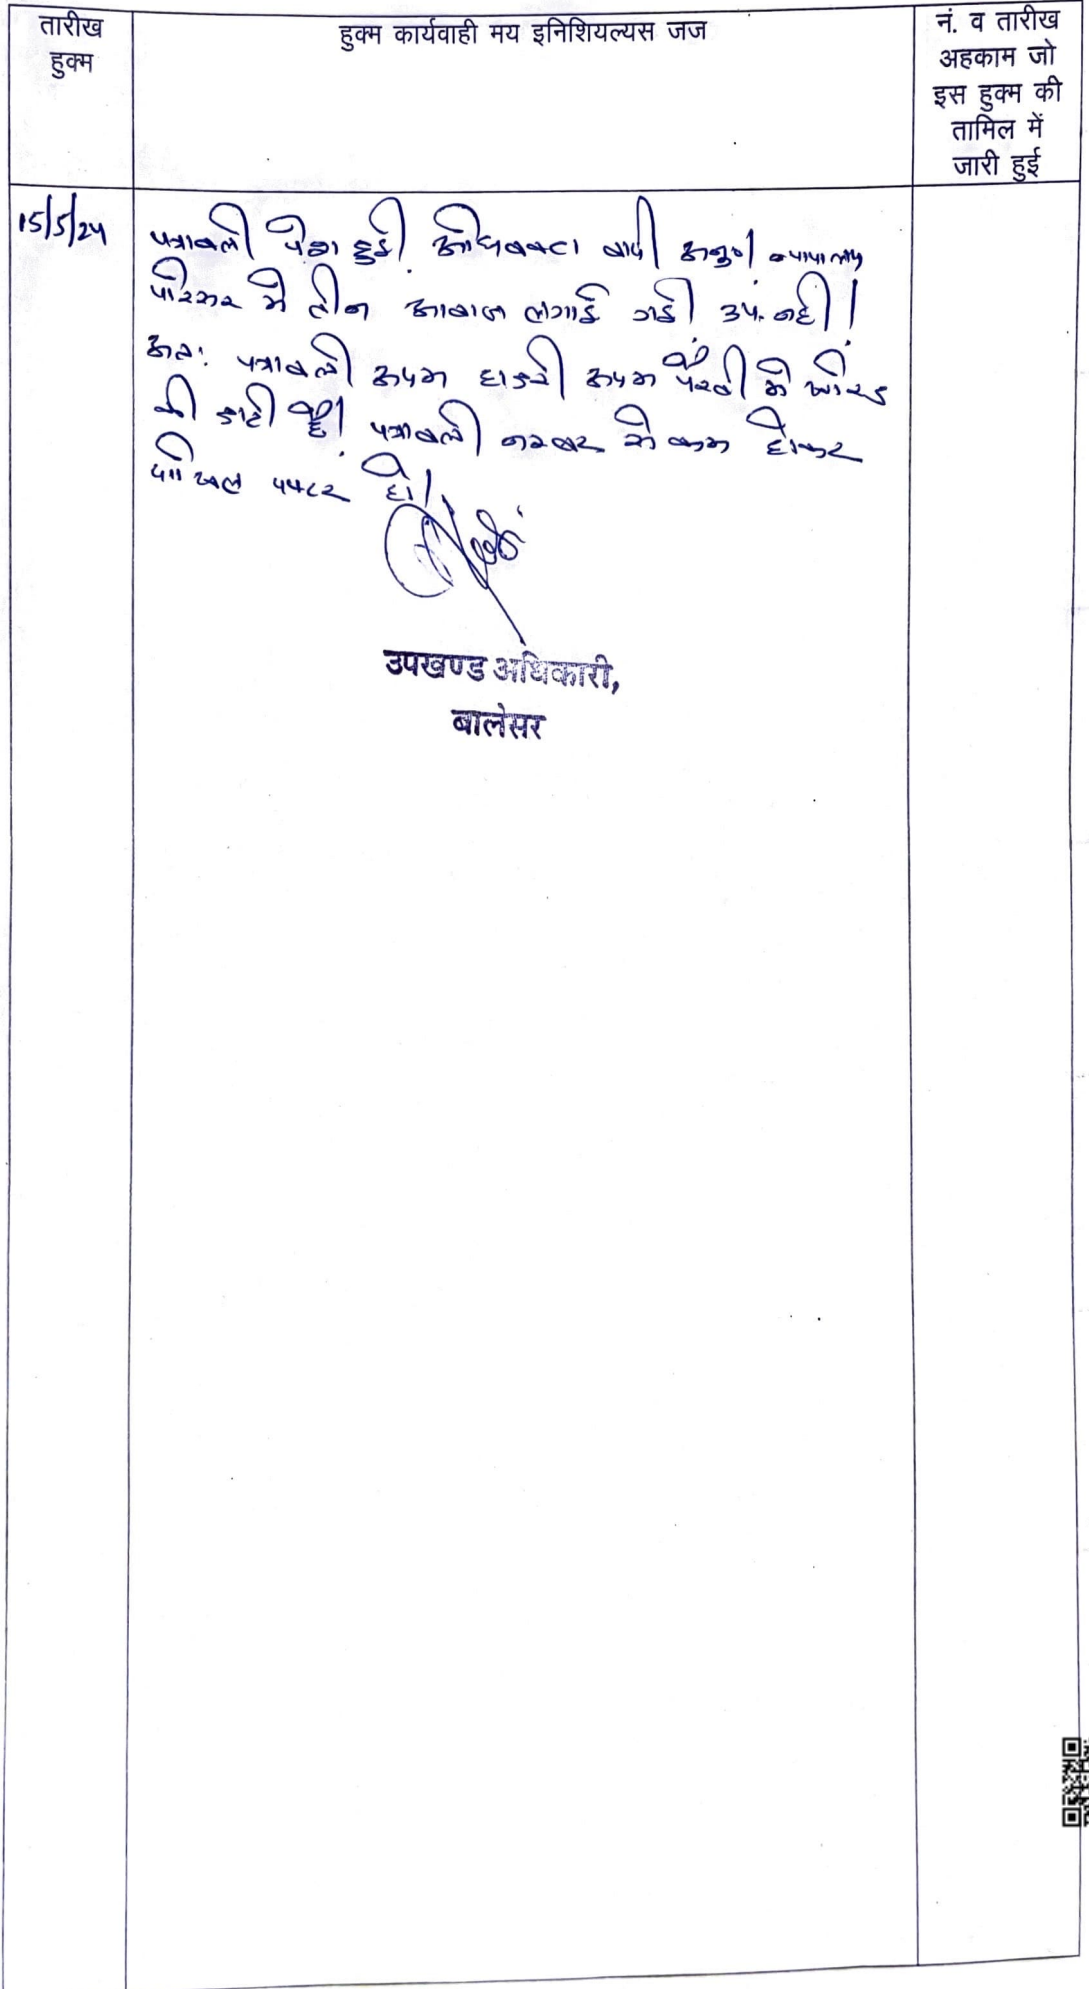 तारीख
हुक्म
हुक्म कार्यवाही मय इनिशियल्यस जज
नं. व तारीख
अहकाम जो
इस हुक्म की
तामिल में
जारी हुई
15/5/24
पत्रावली पेश हुई। अधिवक्ता वादी अनु०। न्यायालय
परिसर में तीन आवाज लगाई गई। उप. नहीं।
अतः पत्रावली अदम हाजरी अदम पैरवी में खारिज
की जाती है। पत्रावली नम्बर से कम होकर
दाखिल दफ्तर हो।
उपखण्ड अधिकारी,
बालेसर